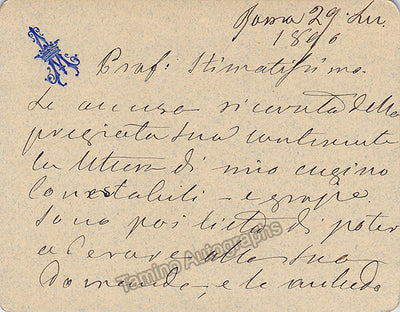 Roma 29. Lu.
1890
Prof: Stimatissimo.
Le accuso ricevuta della
pregiata sua contenente
la lettera di mio cugino
Constabili - e grazie.
Sono poi lieta di poter
alla sua
domanda, e le
Tamino Autographs